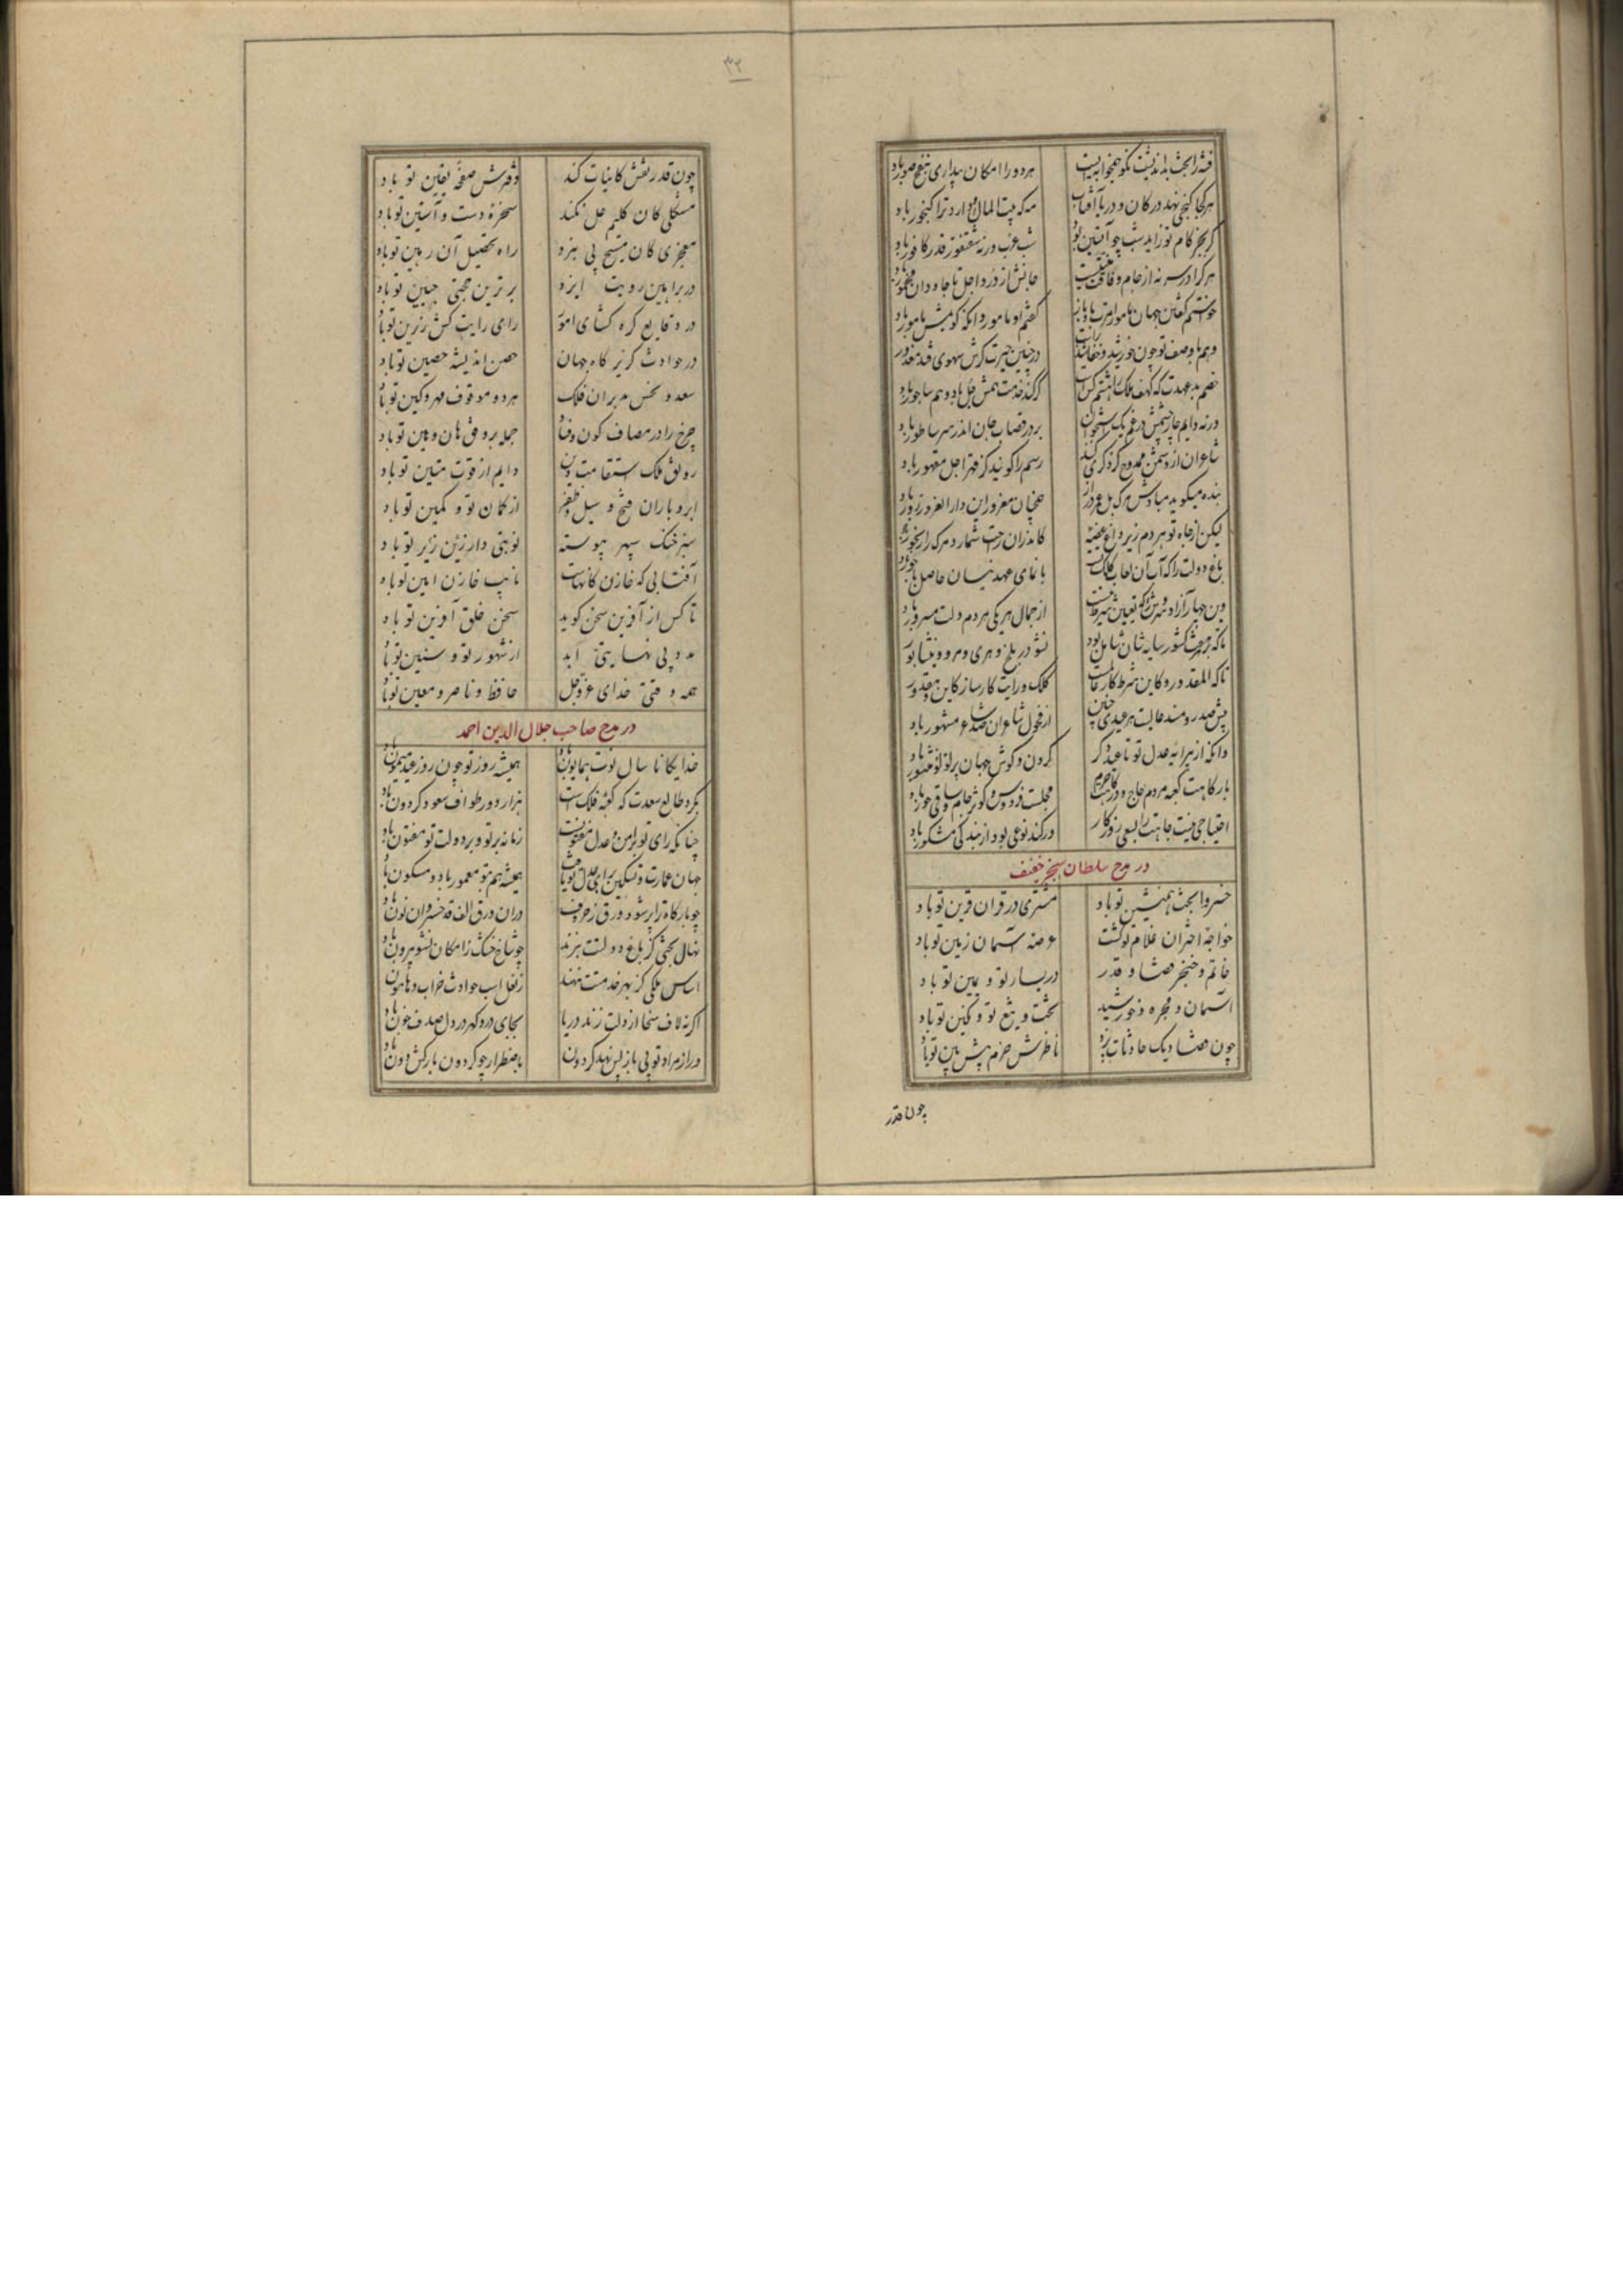 فتنه را بخت بداندیشت نکو همخوابه ایست
هر دو را امکان بیداری بنفخ صور باد
هر کجا گنجی نهد در کان و دریا آفتاب
مه که بیت المال او دارد ترا گنجور باد
گر بجز کام تو زاید شب چو آبستن بود
هر کرا در سر نه از جام وفاق تست می
جانش از درد اجل تا جاودان مخمور باد
خواستم گفتن جهان مامور امرت باد باز
گفتم او مامور و آنکه گویمش مامور باد
وهم با وصف تو چون خورشید و خفاشند راست
در چنین حیرت گرش سهوی فتد معذور
خصم بدعهدت که کهف ملک را هشتم کس است
گر کند خدمت همش جل باد و هم ساجور باد
ورنه دایم چار چشمش در غم یک استخوان
بر در قصاب جان اندر سر ساطور باد
شاعران از دشمن ممدوح گر ذکری کنند
رسم را گویند کز قهر اجل مقهور باد
بنده میگوید مبادش مرگ بل عمر دراز
همچنان مغرور این دار الغرور زور باد
لیکن از جاه تو هر دم زیر داغ غصه
کاندران راحت شمارد مرگ را رنجور باد
باغ دولت را که آب آن لعاب کلک تست
تا که بر هر هشت کشور سایه شان شامل بود
نشو در بلخ و هری و مرو و نیشابور
تا که المقدور و کاین شرط کار عالمست
کلک و رایت کارساز کاین و مقدور
پیش صدر و مسند عالیت هر عیدی چنین
از فحول شاعران صد شاعر مشهور باد
وانکه از پیرایه عدل تو تا عید دگر
گردن و گوش جهان پر لؤلؤ منثور باد
بارگاهت کعبه مردم حاج و درگاهت حرم
مجلست فردوس و کوثر جام و ساقی حور باد
احتیاجی نیست جاهت را بسعی روزگار
ور کند نوعی بود از بندگی مشکور باد
در مدح سلطان سنجر
خسروا بخت همنشین تو باد
مشتری در قران قرین تو باد
خواجه اختران غلام تو گشت
عرصه آسمان زمین تو باد
خاتم و خنجر قضا و قدر
در یسار تو و یمین تو باد
آسمان و مجره و خورشید
تخت و تیغ تو و نگین تو باد
چون قضا دیگ حادثات پزد
ناظرش حزم پیش بین تو باد
چون قدر
۳۲
چون قدر نقش کاینات کند
دفترش صفحه یقین تو باد
مشکلی کان کلیم حل نکند
سخره دست و آستین تو باد
معجزی کان مسیح پی نبرد
راه تحصیل آن رهین تو باد
در براهین رویت ایزد
برترین حجتی جبین تو باد
در وقایع گره گشای امور
رای رایت کش رزین تو باد
در حوادث گریزگاه جهان
حصن اندیشه حصین تو باد
سعد و نحس مدبران فلک
هر دو موقوف مهر و کین تو باد
چرخ را در مصاف کون و فساد
حمله بر وفق هان و هین تو باد
رونق ملک و استقامت دین
دایم از قوت متین تو باد
ابر و باران فتح و سیل ظفر
از کمان تو و کمین تو باد
سبز خنگ سپهر پیوسته
نوبتی دار زین زیر تو باد
آفتابی که خازن کانهاست
نایب خازن امین تو باد
تا کس از آفرین سخن گوید
سخن خلق آفرین تو باد
مدد بی نهایتی ابد
از شهور تو و سنین تو باد
همه وقتی خدای عز و جل
حافظ و ناصر و معین تو باد
در مدح صاحب جلال الدین احمد
خدایگانا سال نوت همایون باد
همیشه روز تو چون روز عید میمون باد
بگرد طالع سعدت که کعبه فلک است
هزار دور طواف سعود گردون باد
چنانکه رای تو بر امن و عدل مفتونست
زمانه بر تو و بر دولت تو مفتون باد
جهان عمارت و تسکین برای عدل تو یافت
همیشه هم بتو معمور باد و مسکون باد
چو بارگاه ترا پر شود ورق ز حروف
دران ورق الف قد خسروان نون باد
نهال بختی کز باغ دولتت ببرند
چو شاخ خشک ز امکان نشو بیرون باد
اساس ملکی کز بهر خدمتت ننهند
ز نعل اسب حوادث خراب و هامون
اگر نه لاف سخا از دلت زند دریا
بجای در و گهر در دل صدف خون باد
ور از مراد تو پی باز پس نهد گردون
باضطرار چو گردون بارکش دون باد